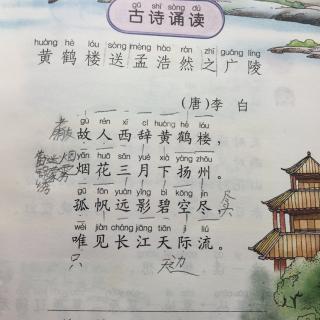 gǔ shī sòng dú
古诗诵读
huáng hè lóu sòng mèng hào rán zhī guǎng líng
黄鹤楼送孟浩然之广陵
(唐)李 白
gù rén xī cí huáng hè lóu
故人西辞黄鹤楼，
yān huā sān yuè xià yáng zhōu
烟花三月下扬州。
gū fān yuǎn yǐng bì kōng jìn
孤帆远影碧空尽，
wéi jiàn cháng jiāng tiān jì liú
唯见长江天际流。
只 天边